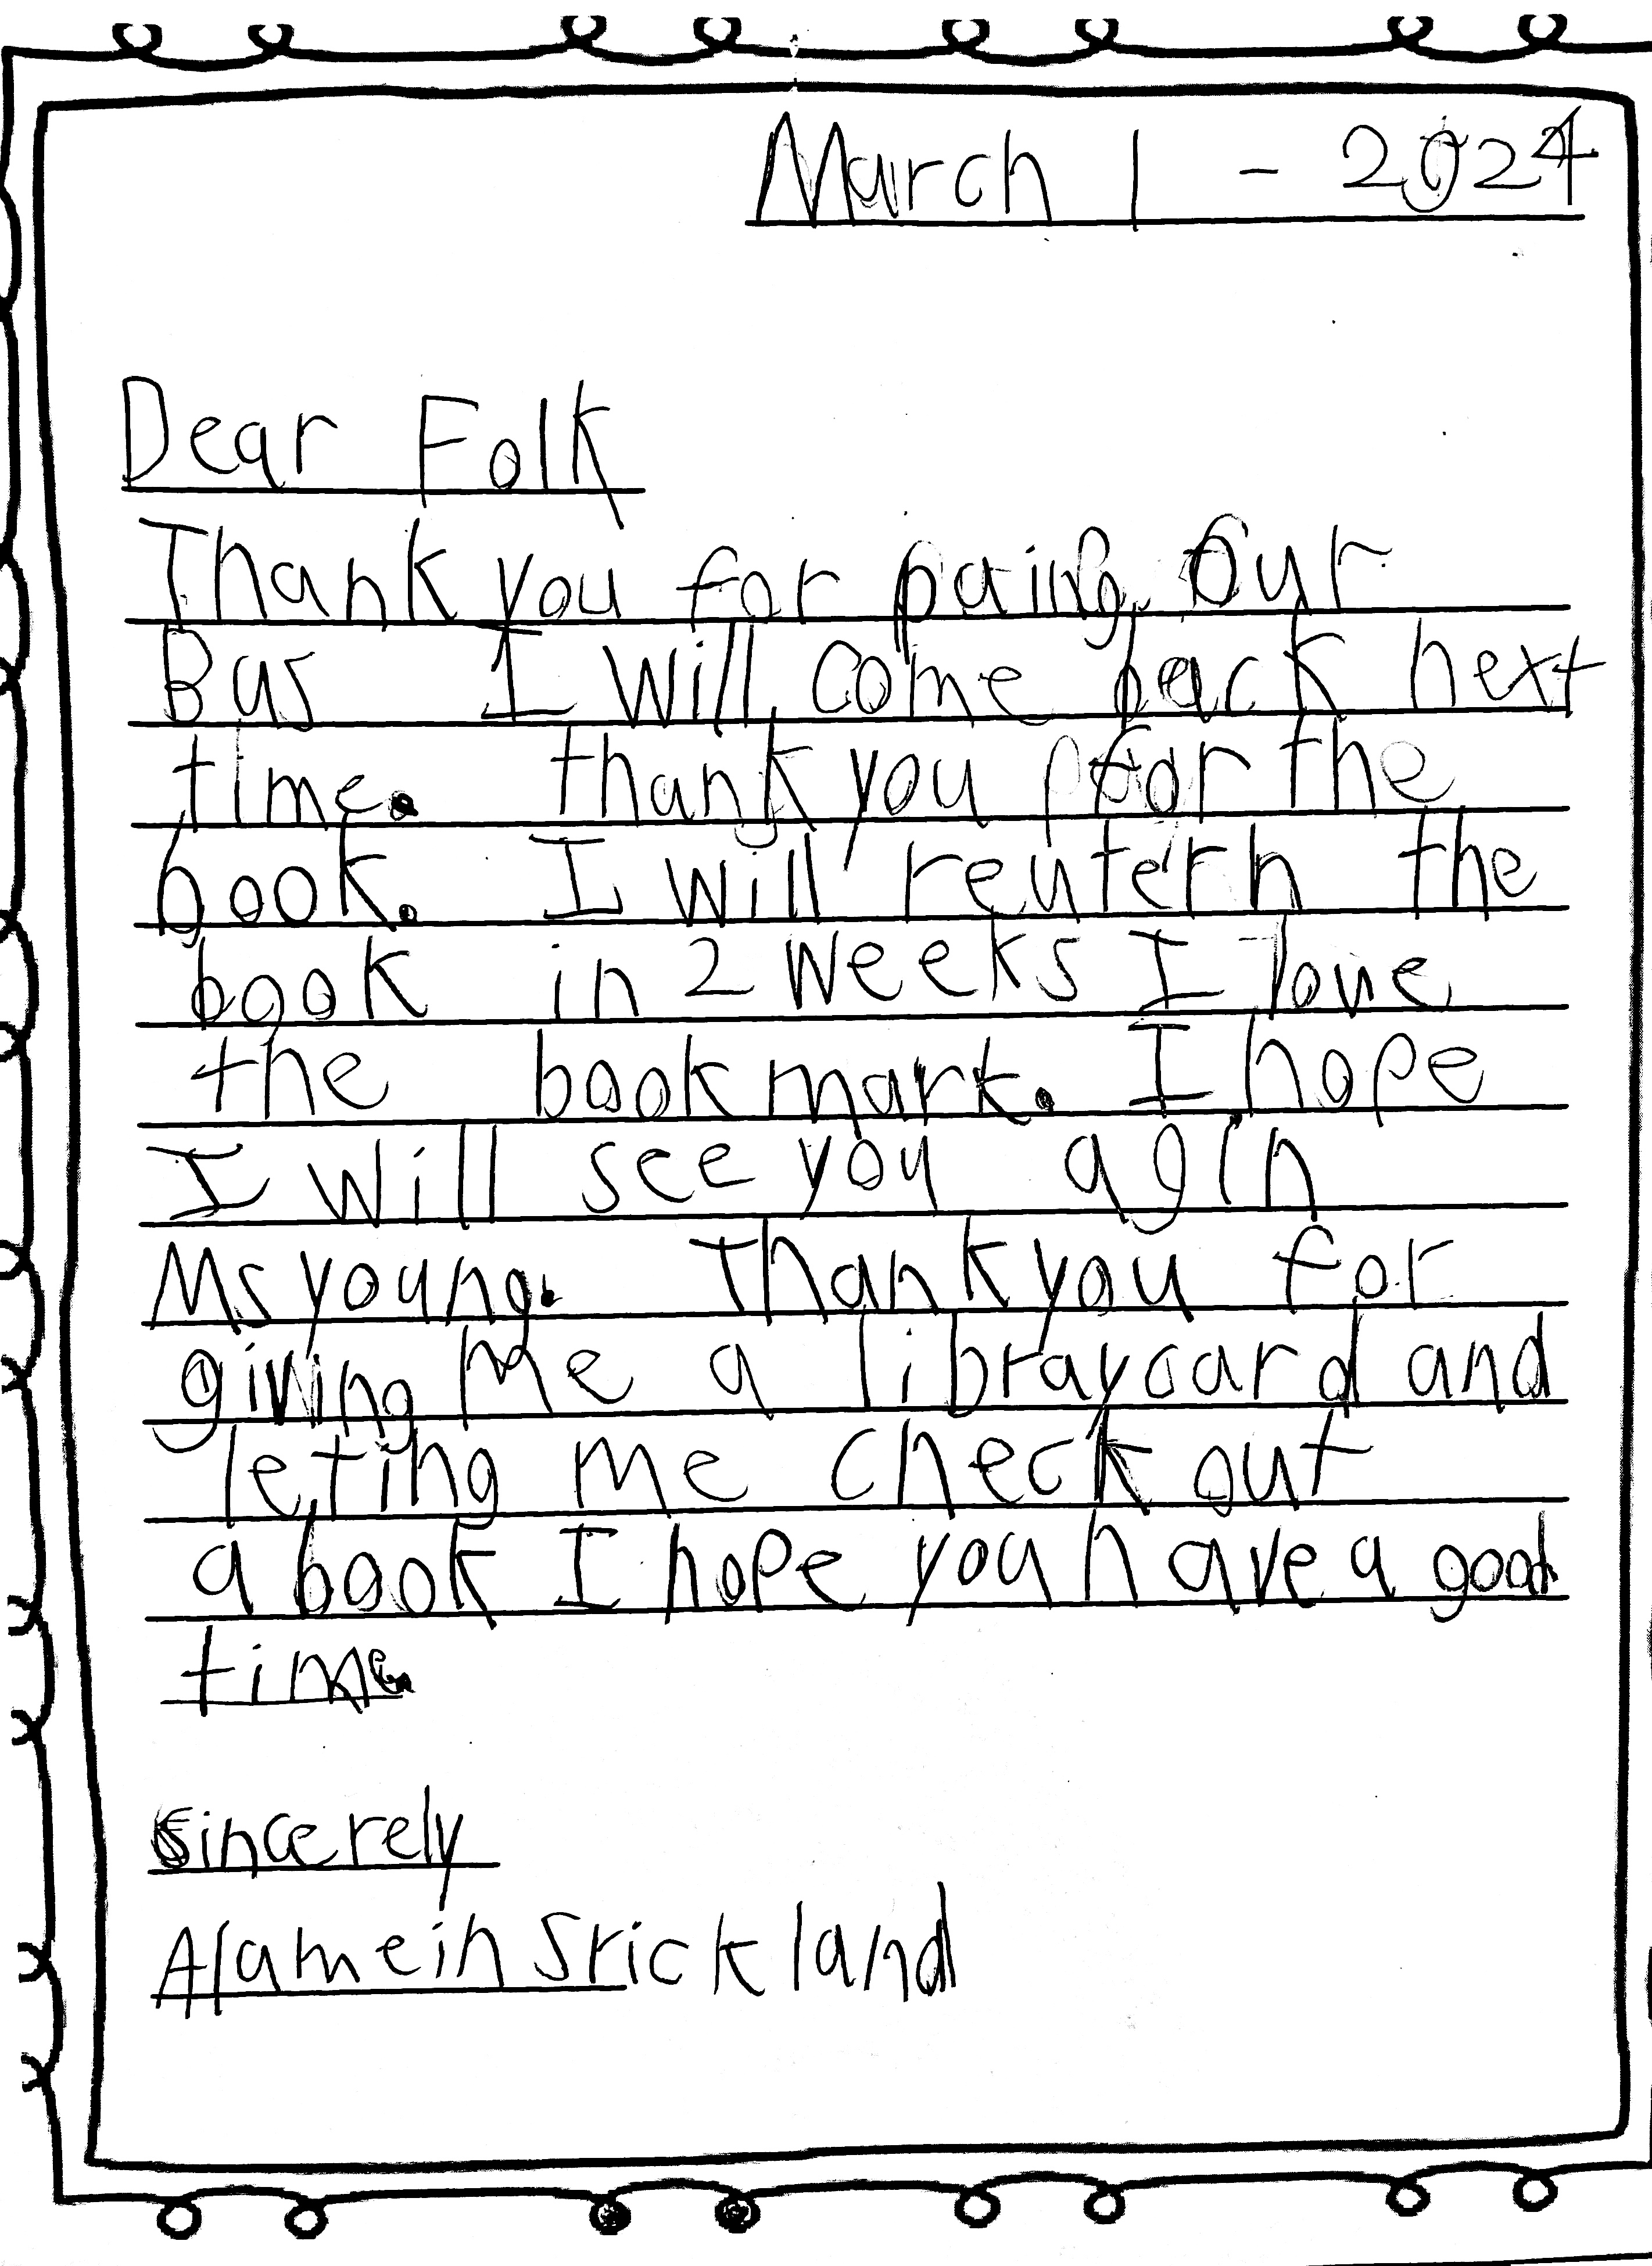 March 1 - 2024
Dear Folk
Thank you for paing our
Bus I will come back next
time. thank you for the
book. I will reutern the
book in 2 weeks I love
the bookmark. I hope
I will see you agin
Ms young. Thank you for
giving me a libraycard and
leting me check out
a book I hope you have a good
time.
Sincerely
Alamein Srickland